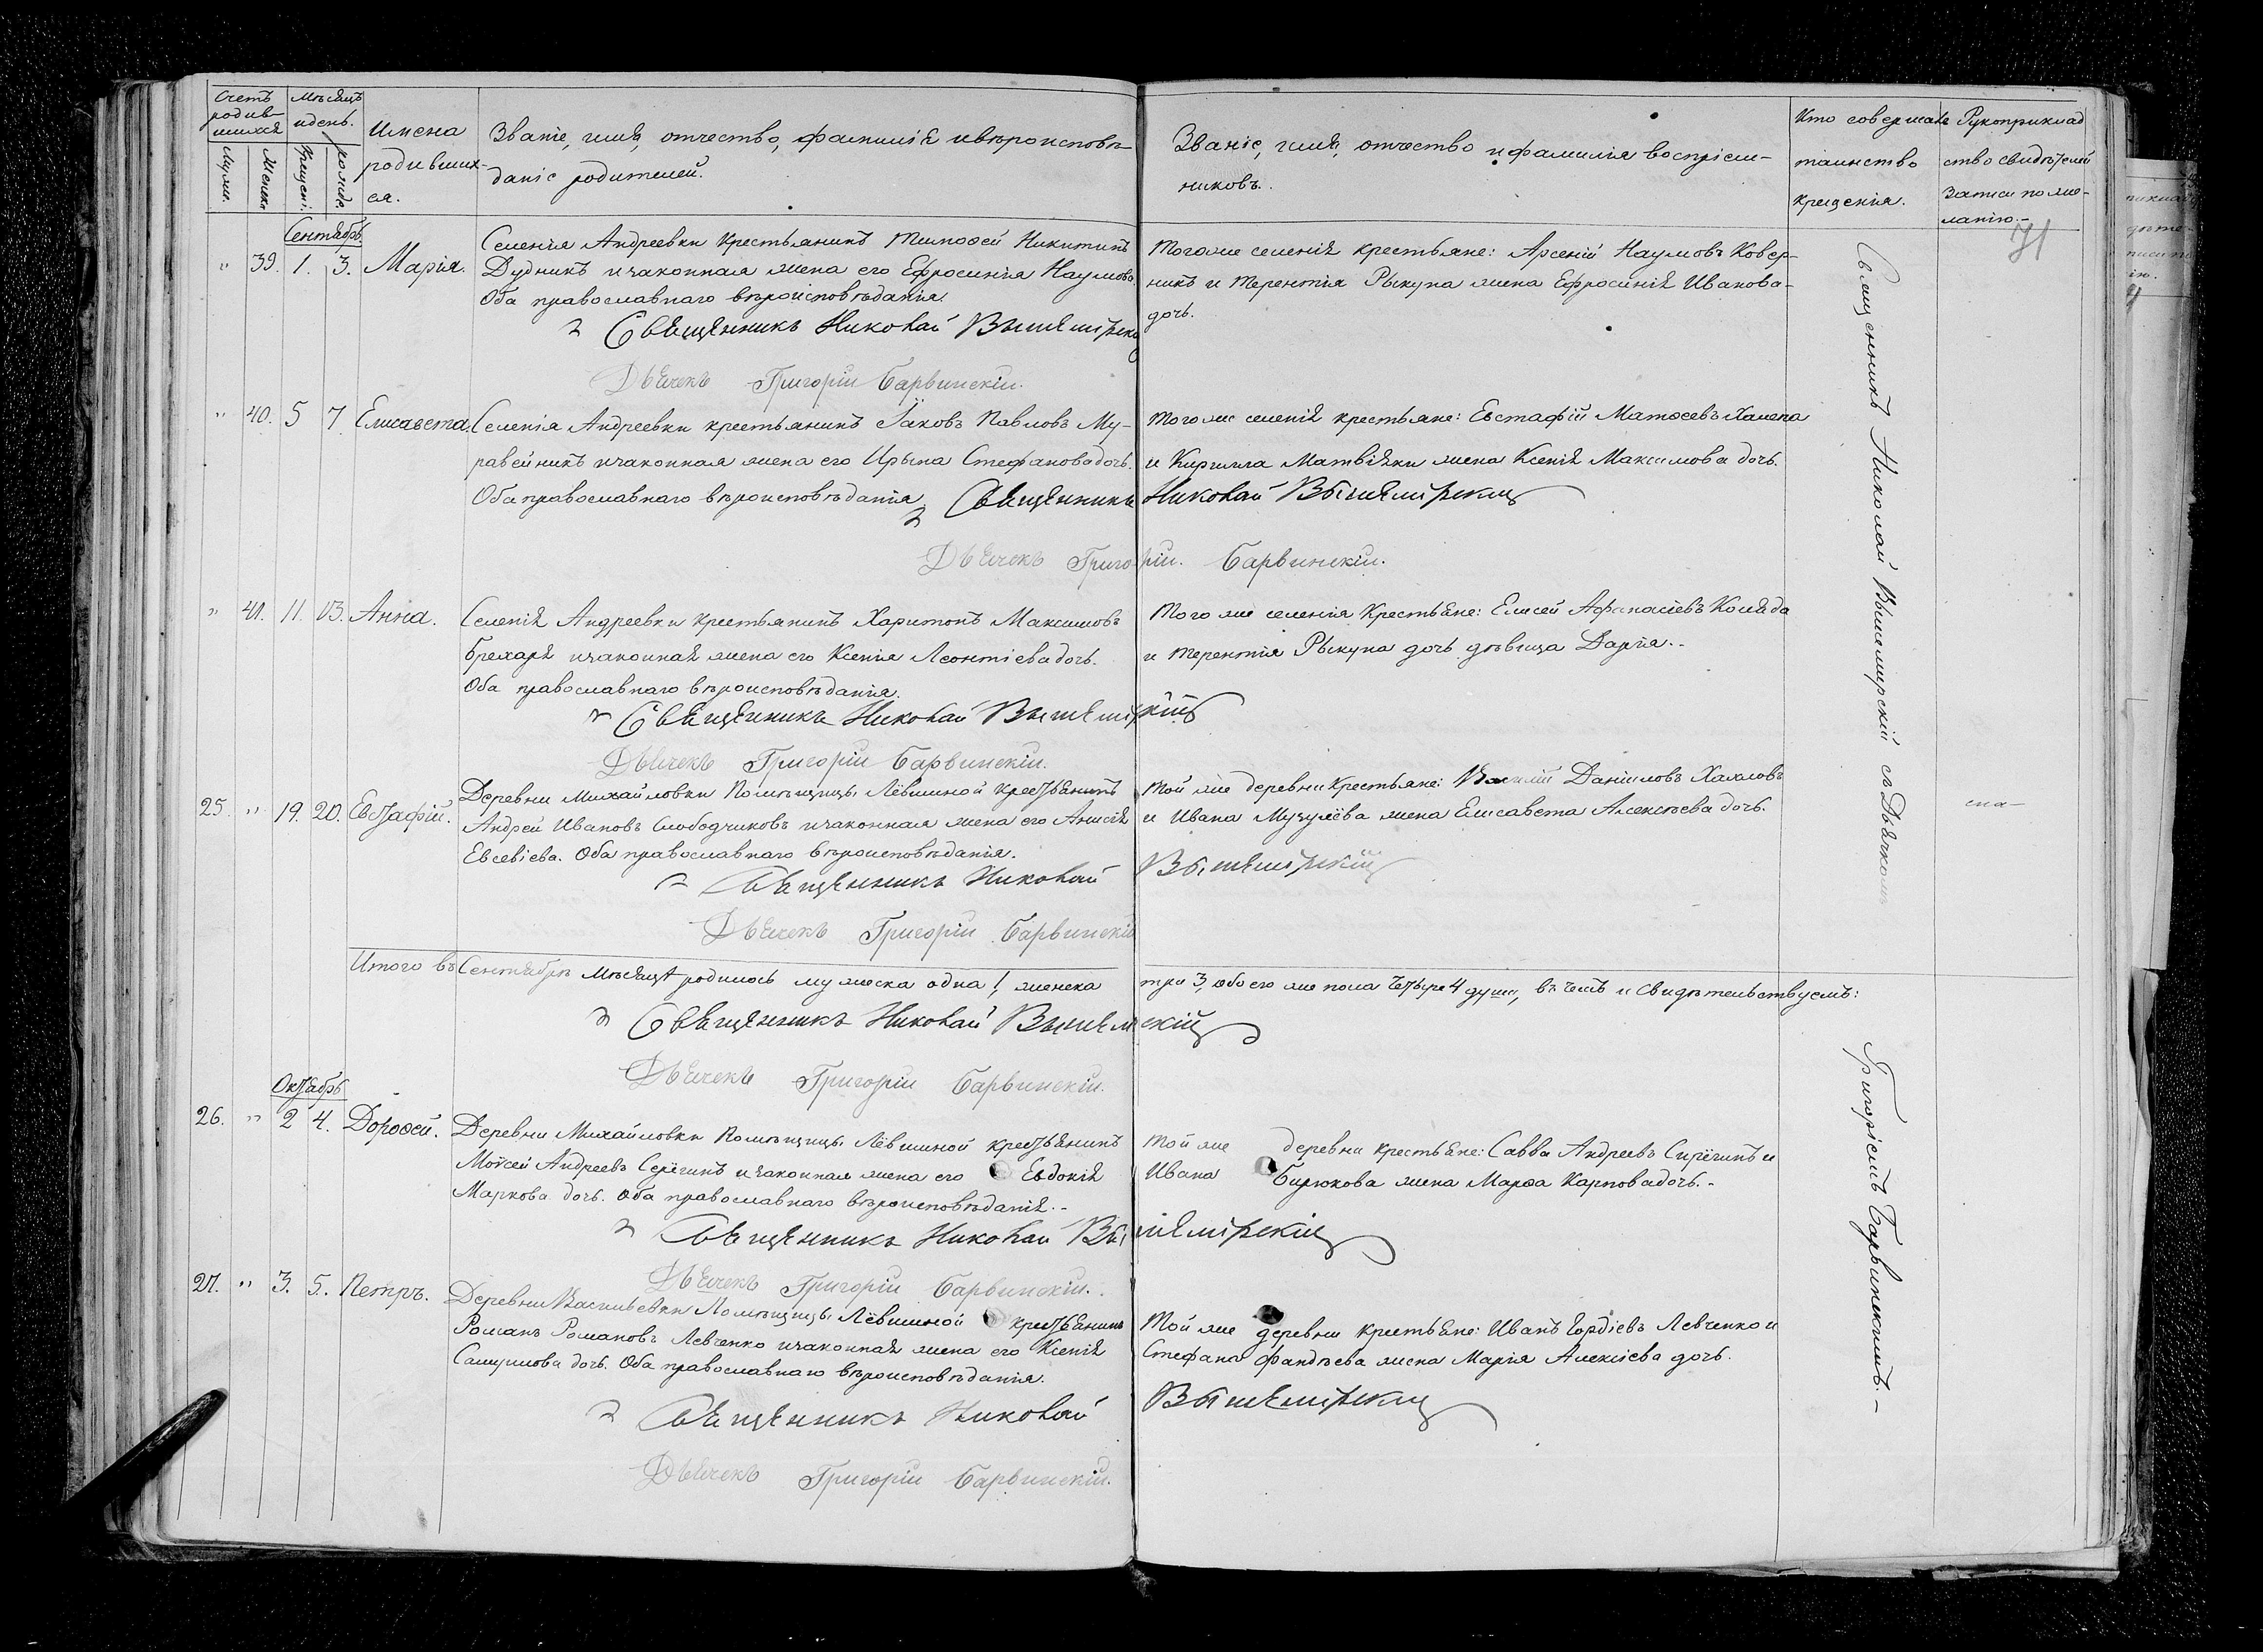 Счетъ родив-
шихся
Мѣсяцъ
и день.
Муже.
Женск.
Крещені.
рожде.
Имена
родивших-
ся.
Званіе, имя, отчество, фамилія и вѣроисповѣ-
даніе родителей.
Званіе, имя, отчество и фамилія воспріем-
никовъ.
Кто совершалъ
таинство
крещенія.
Рукоприклад
ство свидѣтелей
записи по же-
ланію.-
71
Сентябрь.
„ 39. 1. 3. Марія.
Селенія Андреевки крестьянинъ Тимофей Никитинъ
Дудникъ и законная жена его Ефросинія Наумова.
Оба православнаго вѣроисповѣданія.
Тогоже селенія крестьяне: Арсеній Наумовъ Ковер-
никъ и Терентія Рыкуна жена Ефросинія Иванова-
дочь.
Священникъ Николай Вышемірскі
Дьячекъ Григорій Барвинскій.
„ 40. 5 7. Елисавета.
Селенія Андреевки крестьянинъ Іаковъ Павловъ Му-
равейникъ и законная жена его Ирына Стефанова дочь.
Оба православнаго вѣроисповѣданія
Тогоже селенія крестьяне: Евстафій Матѳеевъ Халепа
и Кирилла Матвіяки жена Ксенія Максимова дочь.
Священникъ Николай Вышемірскій
Дьячекъ Григорій. Барвинскій.
„ 41. 11. 13. Анна.
Селенія Андреевки крестьянинъ Харитонъ Максимовъ
Брехаря и законная жена его Ксенія Леонтіева дочь.
Оба православнаго вѣроисповѣданія.
Того же селенія крестьяне: Елисей Афанасіевъ Коляда
и Терентія Рыкуна дочь дѣвица Дарія.-
Священникъ Николай Вышемірскій
Дьячекъ Григорій Барвинскій.
25. „ 19. 20. Евстафій.
Деревни Михайловки Помѣщицы Лёвшиной крестьянинъ
Андрей Ивановъ Слободчиковъ и законная жена его Анисія
Евсевіева. Оба православнаго вѣроисповѣданія.
Той же деревни крестьяне: Василій Даниловъ Хахловъ
и Ивана Музулёва жена Елисавета Алексѣева дочь.
Священникъ Николай Вышемірскій
Дьячекъ Григорій Барвинскій
Итого въ Сентябрѣ мѣсяцѣ родилось мужеска одна 1, женска три 3, обоего же пола четыре 4 души, въ чемъ и свидѣтельствуемъ:
Священникъ Николай Вышемірскій
Дьячекъ Григорій Барвинскій.
Октябрь
26. „ 2 4. Дороѳей.
Деревни Михайловки Помѣщицы Лёвшиной крестьянинъ
Моѵсей Андреевъ Серёгинъ и законная жена его Евдокія
Маркова дочь. Оба православнаго вѣроисповѣданія.-
Той же деревни крестьяне: Савва Андреевъ Сирёгинъ и
Ивана Бирюкова жена Марѳа Карпова дочь.-
Священникъ Николай Вышемірскій
Дьячекъ Григорій Барвинскій.
27. „ 3. 5. Петръ.
Деревни Васильевки Помѣщицы Лёвшиной крестьянинъ
Романъ Романовъ Левченко и законная жена его Ксенія
Самуилова дочь. Оба православнаго вѣроисповѣданія.
Той же деревни крестьяне: Иванъ Гордіевъ Левченко и
Стефана Фандѣева жена Марія Алексіева дочь.
Священникъ Николай Вышемірскій
Дьячекъ Григорій Барвинскій.
Священникъ Николай Вышемірскій съ Дьячкомъ
Григоріемъ Барвинскимъ.-